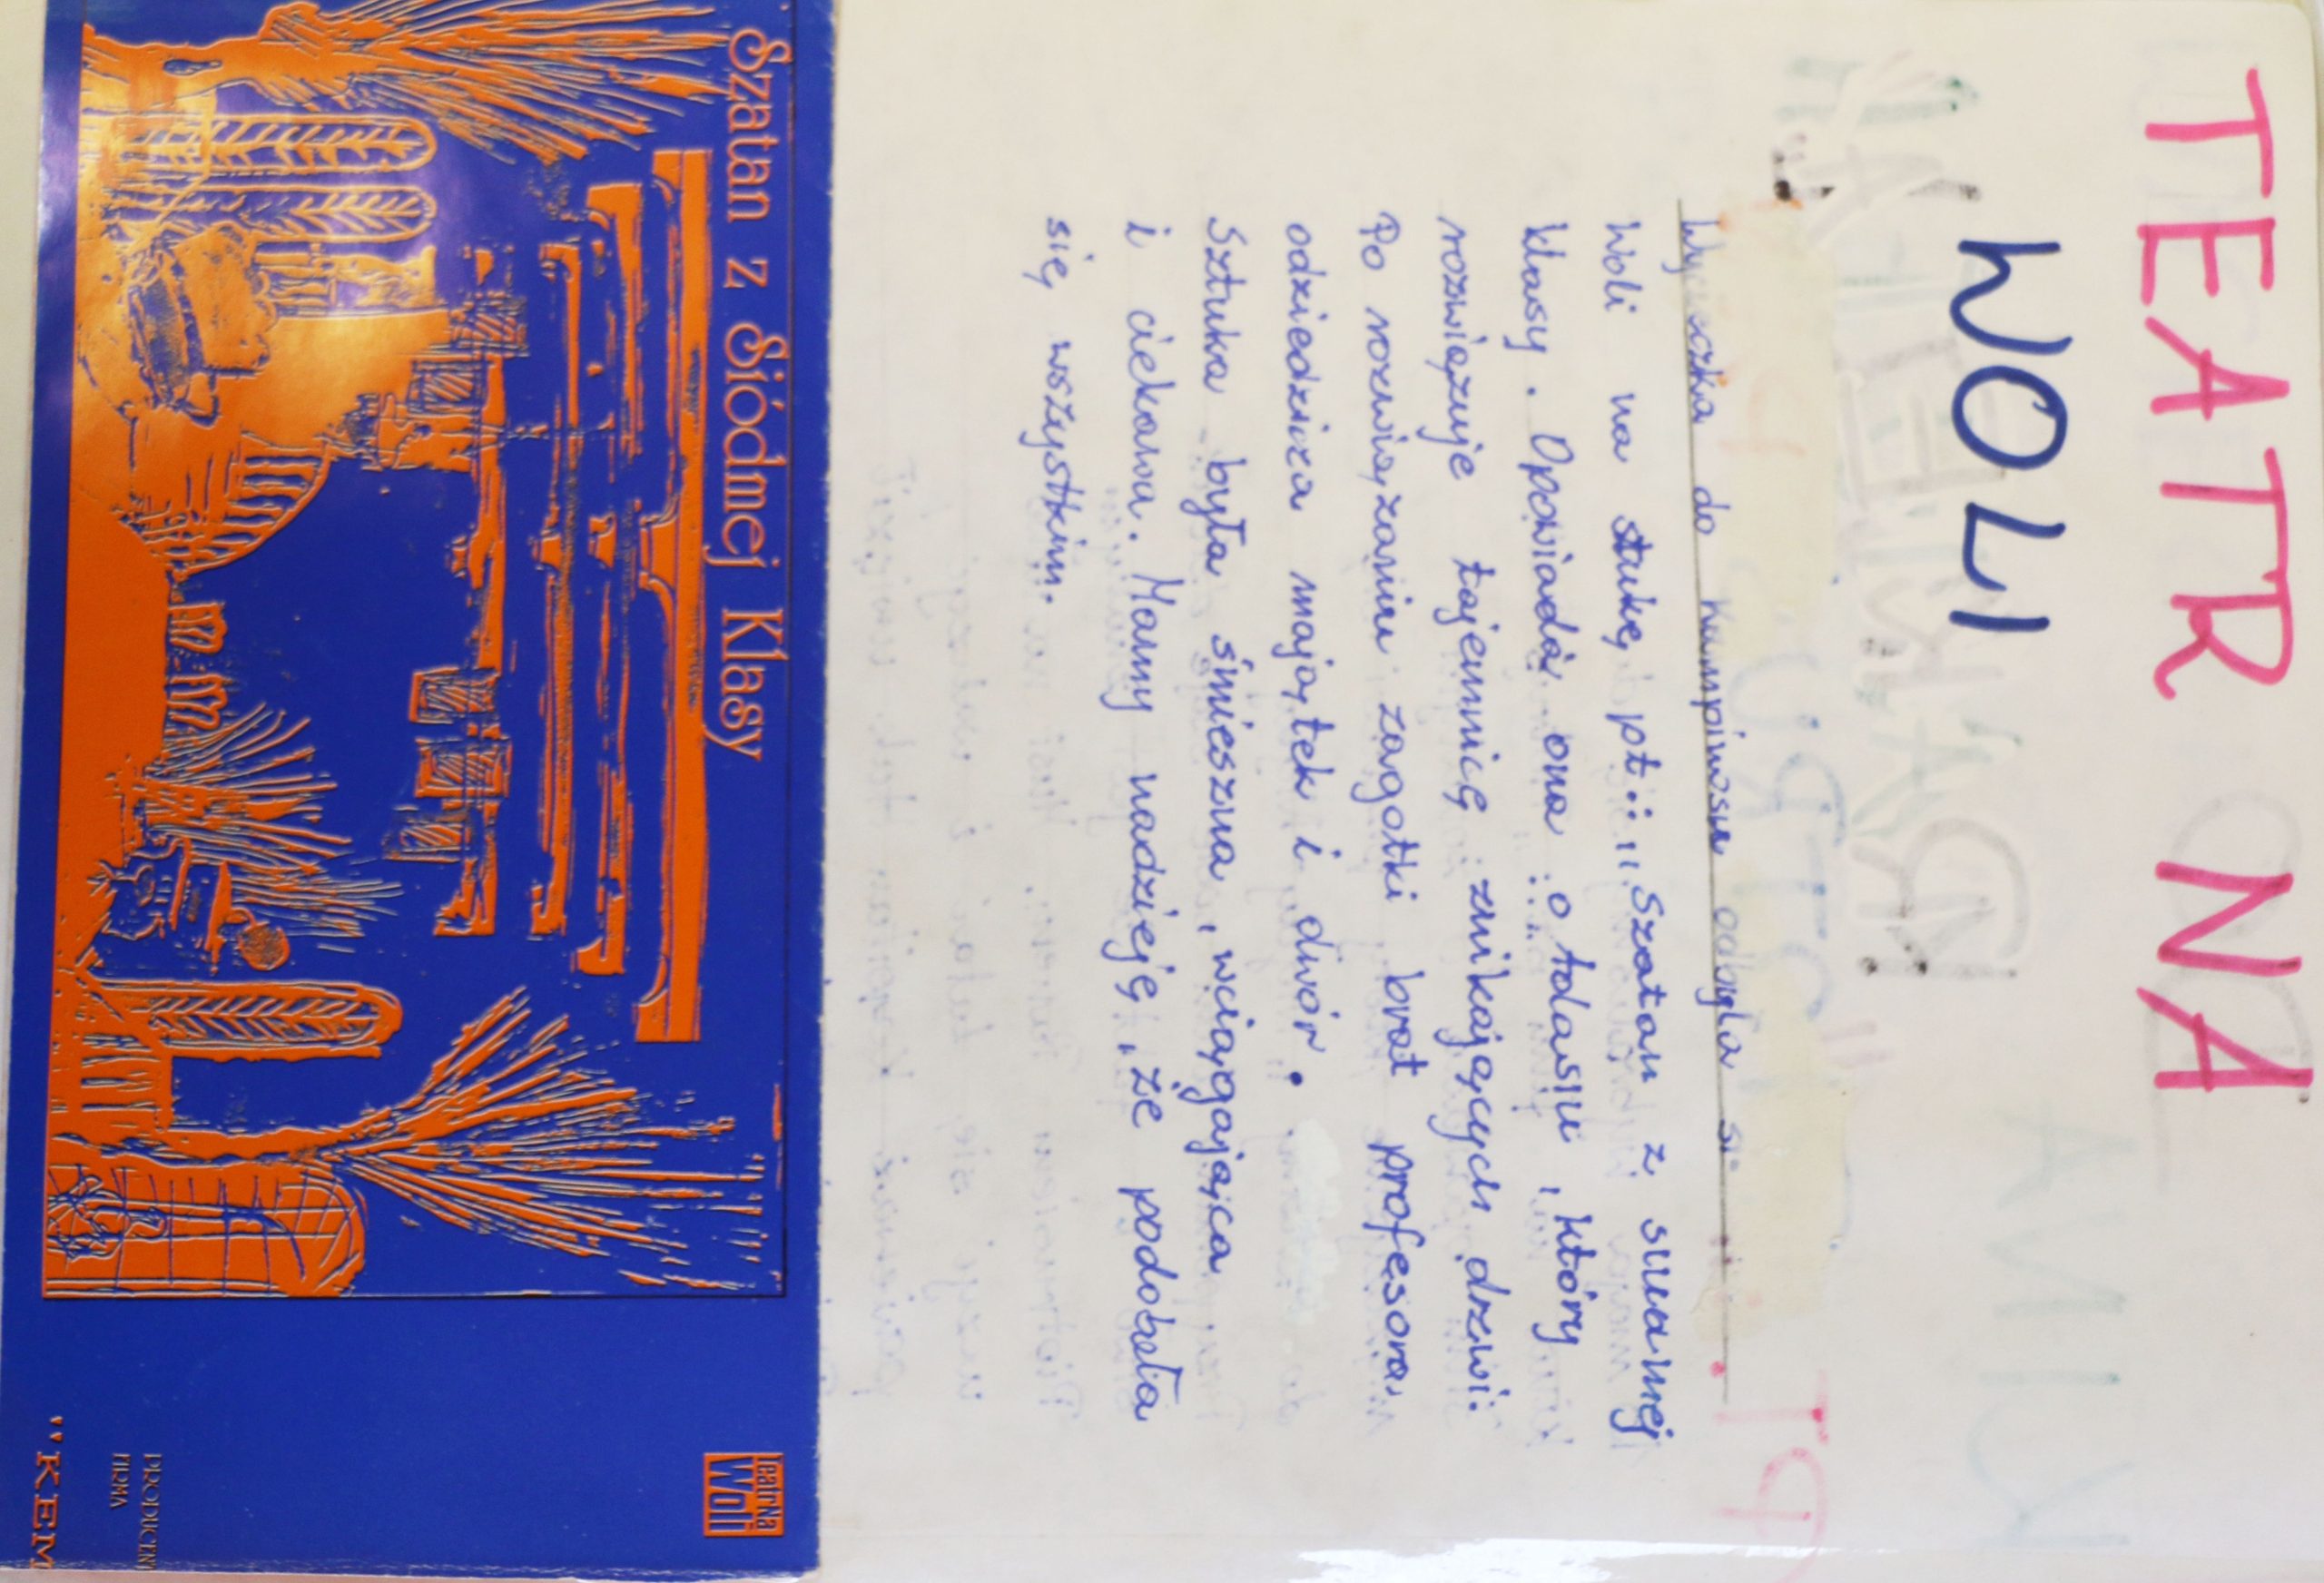 TEATR NA
WOLI
Wycieczka do Kampinosu odbyła si
Woli na stukę pt.: "Szatan z suamej
klasy. Opowiada ona o Adasiu, który
rozwiązuje tajemnicę znikających drzwi.
Po rozwiązaniu zagatki brat profesora
odziedzicza majątek i dwór.
Sztuka była śmieszna, wciągająca
i ciekawa. Mamy nadzieję, że podobała
się wszystkim.
Szatan z Siódmej Klasy
Teatr Na
Woli
PRODUCEN
FIRMA
"KEM